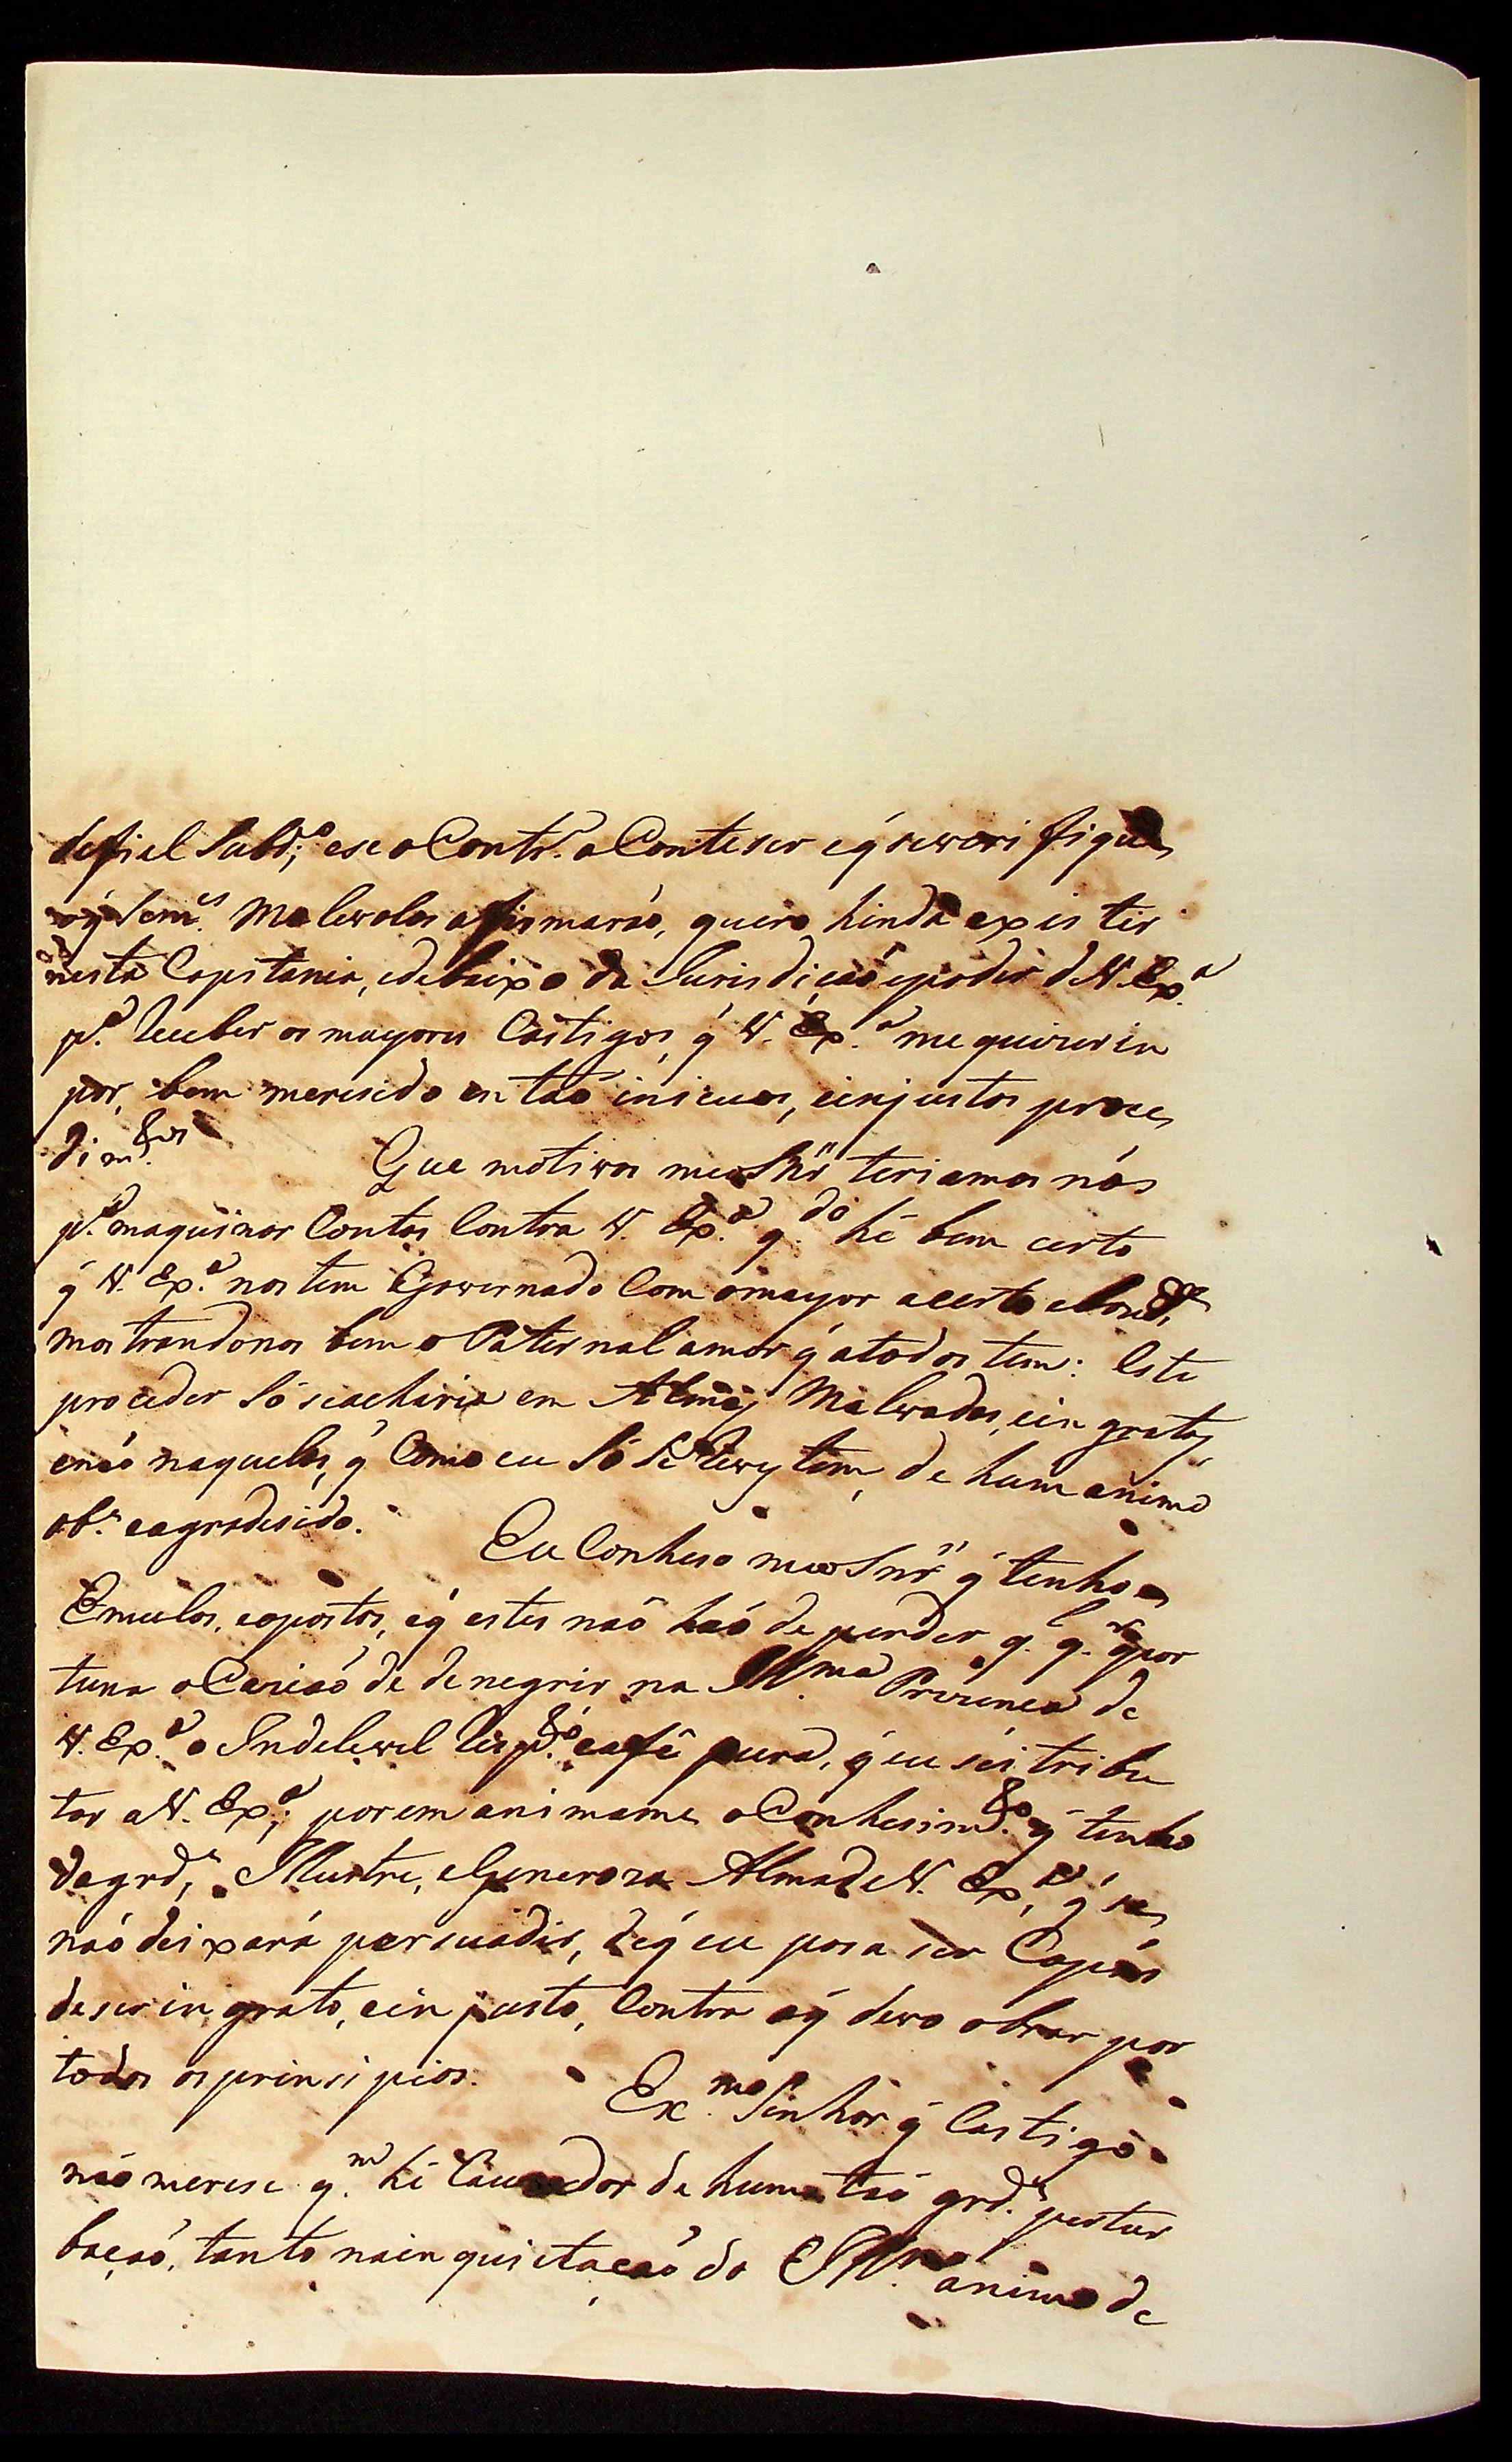 defiel Subd.º; ese o Contr.º aConteser eq̃ severi fique
oq̃ Sem.es Malevolos afirmaráo, quero hinda exis tir
nesta Capitania, edebaixo da Jurisdiçaó epoder deV. Ex.ª
p.ª Receber os mayores Castigos, q̃ V. Ex.ª me quizer in
por, bem meresido en taó inicuos, einjustos proce
dim.tos
Que motivos meo Snr̃ teriamos nós
p.ª maquinar Contos Contra V. Ex.ª q.do hé bem certo
q̃ V. Ex.ª nos tem Governado Com omayor acerto ebond.e
mostrandonos bem o Paternal amor q̃ atodos tem: Este
proceder Só seacharia em Almas Malvadas, ein gratas
enáo naqueles, q̃ Como eu Só Se Revestem, de hum animo
ob.º eagradesido.
Eu Conheso meo Snr̃ q̃ tenho
Emulos, eopostos, eq̃ estes naó haó de perder q.l q.r opor
tuna oCaziaó de denegrir na Ill.ma Prezença de
V. Ex.ª o Indelevel Resp.to eafé pura, q̃ eu sei tribu
tar aV. Ex.ª; porem animame oConhesim.to q̃ tenho
dagrd.e, Illustre, eGeneroza Alma deV. Ex.ª, q̃ se
náo deixará persuadir, deq̃ eu posa ser Capás
deser in grato, ein justo, Contra oq̃ devo obrar por
todos os prinsi pios.
Ex.mo Senhor q̃ Castigo
náo merese q.m hé Cauzador de huma táo grd.e pertur
baçaó, tanto nain quietaçaó do Ill.mo animo de